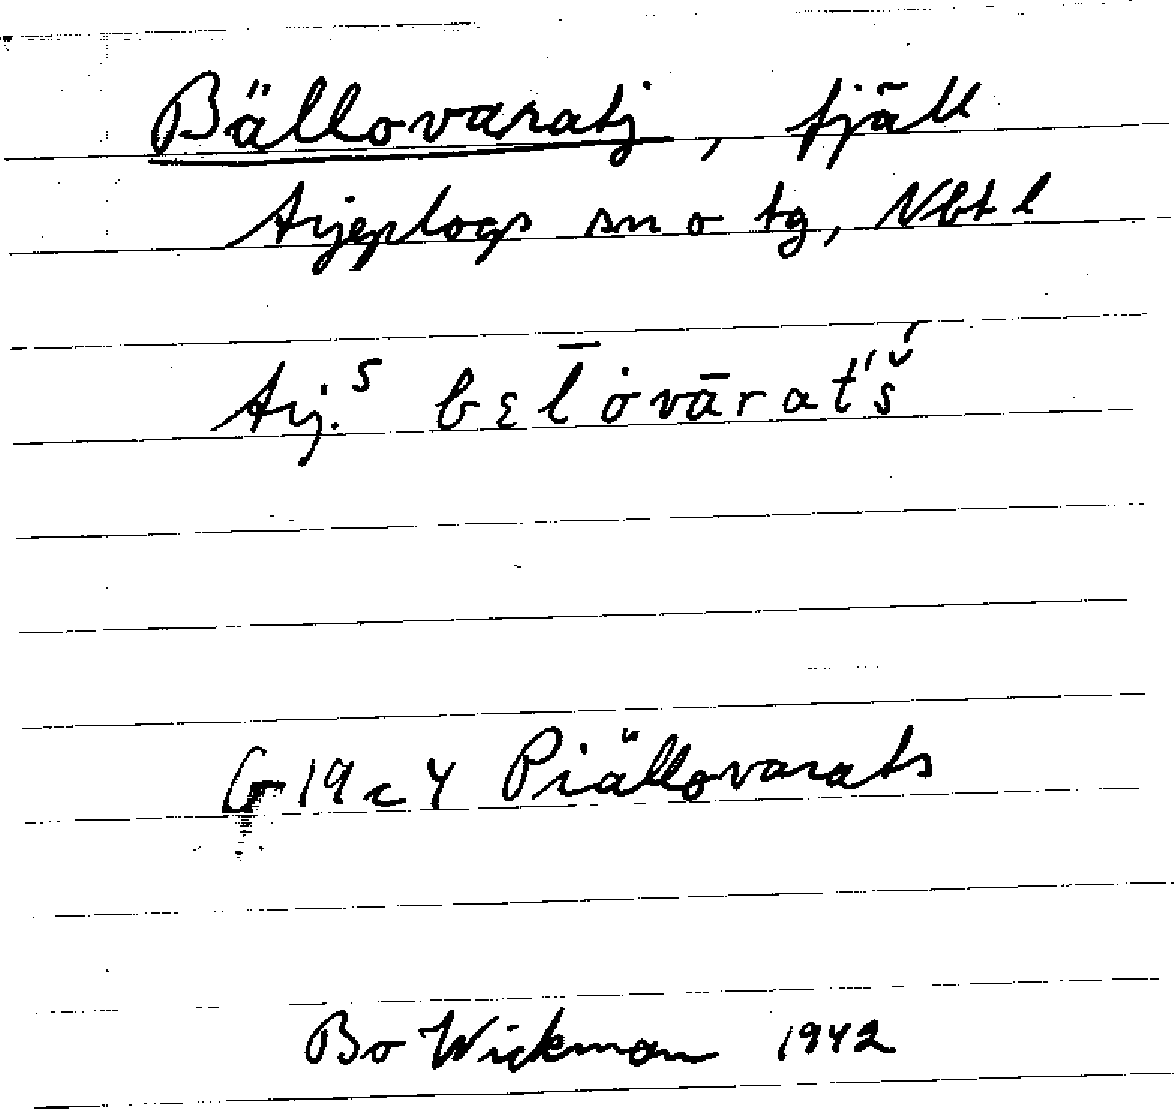 Bällovaratj, fjäll
Arjeplogs sn o tg, Nbtl
Arj.ˢ bɛl̄ȯvāratʹšʹ
G 19 c 4 Piällovarats
Bo Wickman 1942